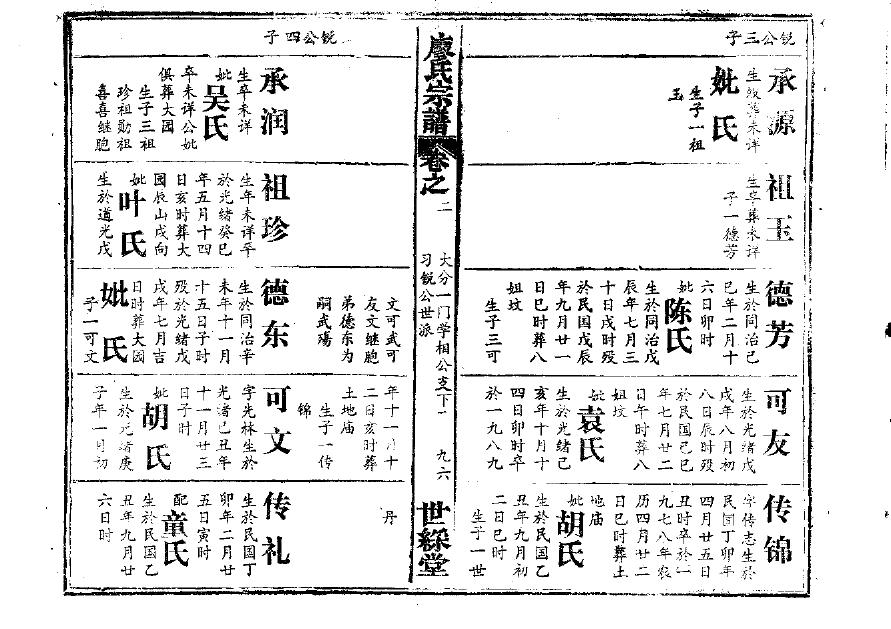 锐公三子
承源
生殁葬未详
妣氏
生子一祖
玉
祖玉
生卒葬未详
子一德芳
德芳
生於同治己
巳年二月十
六日卯时
妣陈氏
生於同治戊
辰年七月三
十日戌时殁
於民国戊辰
年九月廿一
日巳时葬八
姐坟
生子三可
可友
生於光绪戊
戌年八月初
八日辰时殁
於民国己巳
年七月廿二
日午时葬八
姐坟
妣袁氏
生於光绪己
亥年十月十
四日卯时卒
於一九八九
传锦
字传志生於
民国丁卯年
四月廿五日
丑时卒於一
九七八年农
历四月廿二
日巳时葬土
地庙
妣胡氏
生於民国乙
丑年九月初
二日巳时
生子一世
廖氏宗譜卷之二
大分一门学相公支下
习锐公世派
九六
世綵堂
锐公四子
承润
生卒未详
妣吴氏
卒未详公妣
俱葬大園
生子三祖
珍祖勋祖
喜喜继胞
祖珍
生年未详卒
於光緒癸巳
年五月十四
日亥时葬大
園辰山戌向
妣叶氏
生於道光戊
文可武可
友文继胞
弟德东为
嗣武殇
德东
生於同治辛
未年十一月
十五日子时
殁於光绪戊
戌年七月吉
日时葬大園
妣氏
子一可文
年十一月十
二日亥时葬
土地庙
生子一传
锦
可文
字先林生於
光绪己丑年
十一月廿三
日子时
妣胡氏
生於光绪庚
子年一月初
丹
传礼
生於民国丁
卯年二月廿
五日寅时
配童氏
生於民国乙
丑年九月廿
六日时